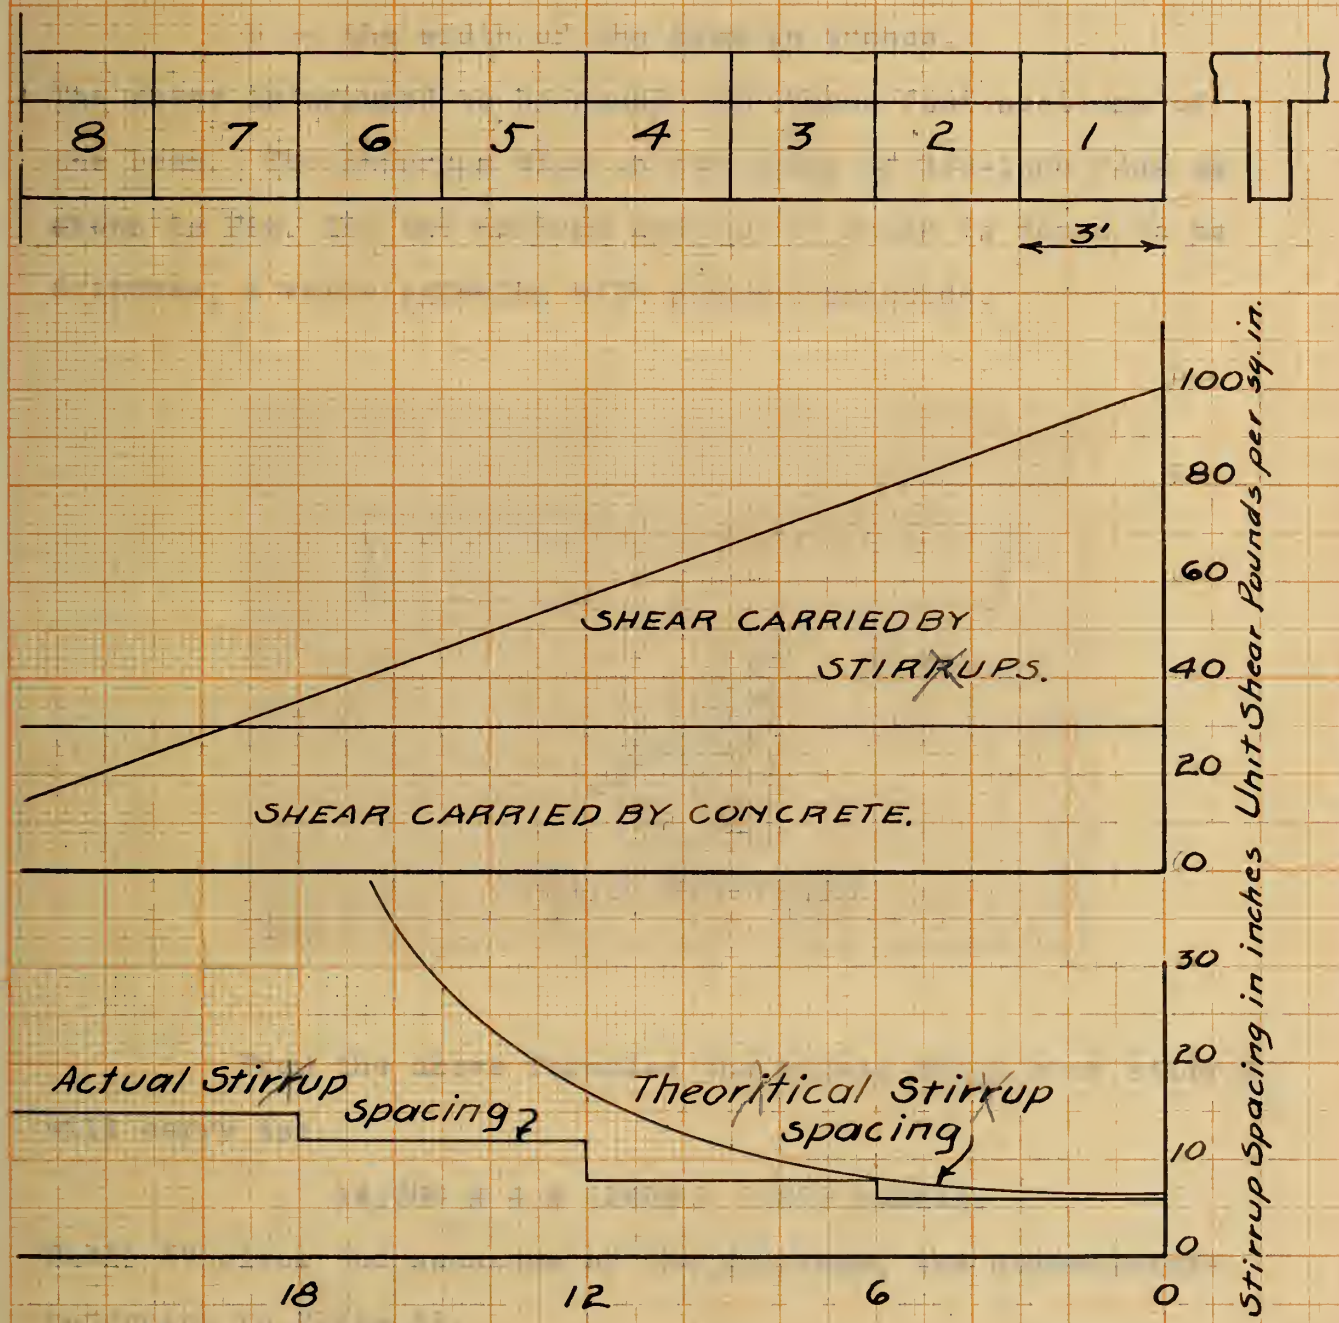 8 7 6 5 4 3 2 1
3'
100
80
60
40
20
0
Unit Shear Pounds per sq. in.
SHEAR CARRIED BY
STIRRUPS.
SHEAR CARRIED BY CONCRETE.
30
20
10
0
Stirrup Spacing in inches
Actual Stirrup
spacing
Theoritical Stirrup
spacing
18 12 6 0